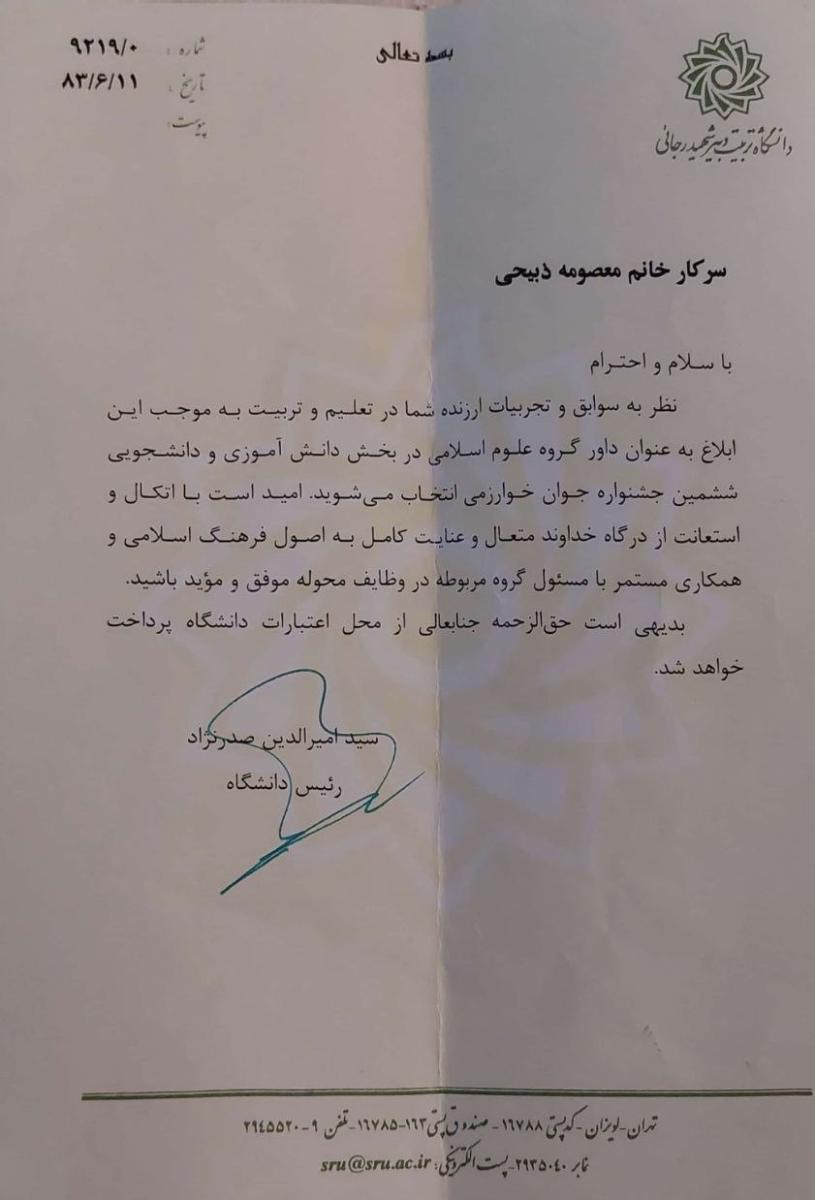 بسمه تعالی
دانشگاه تربیت دبیر شهید رجائی
شماره : ۹۲۱۹/۰
تاریخ : ۸۳/۶/۱۱
پیوست:
سرکار خانم معصومه ذبیحی
با سلام و احترام
نظر به سوابق و تجربیات ارزنده شما در تعلیم و تربیت به موجب این
ابلاغ به عنوان داور گروه علوم اسلامی در بخش دانش آموزی و دانشجویی
ششمین جشنواره جوان خوارزمی انتخاب می‌شوید. امید است با اتکال و
استعانت از درگاه خداوند متعال و عنایت کامل به اصول فرهنگ اسلامی و
همکاری مستمر با مسئول گروه مربوطه در وظایف محوله موفق و مؤید باشید.
بدیهی است حق‌الزحمه جنابعالی از محل اعتبارات دانشگاه پرداخت
خواهد شد.
سید امیرالدین صدرنژاد
رئیس دانشگاه
تهران-لویزان-کدپستی ۱۶۷۸۸-صندوق پستی ۱۶۳-۱۶۷۸۵-تلفن ۹-۲۹۴۵۵۲۰
نمابر ۲۹۳۵۰۴۰-پست الکترونیکی: sru@sru.ac.ir